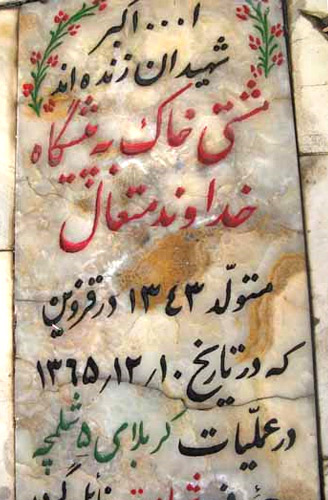 ا...اکبر
شهیدان زنده‌اند
مشتی خاک به پیشگاه
خداوند متعال
متولّد ۱۳۴۳ در قزوین
که در تاریخ ۱۰/۱۲/۱۳۶۵
در عملیّات کربلای ۵ شلمچه